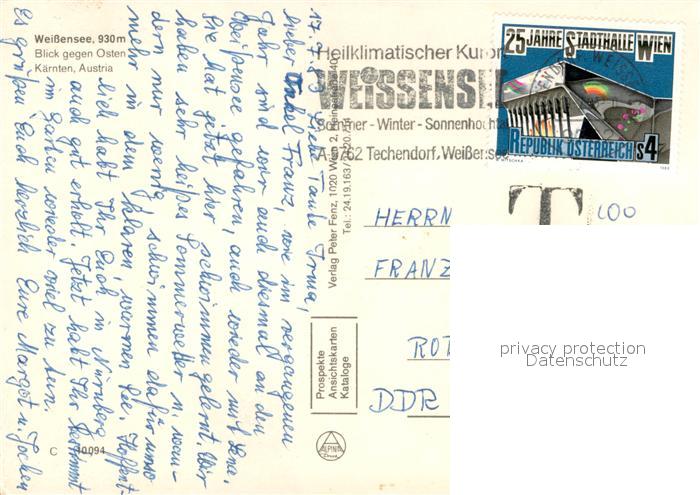 Weißensee, 930 m
Blick gegen Osten
Kärnten, Austria
Liebe Tante Irma,
lieber Onkel Franz, wie im vergangenen
Jahr sind wir auch diesmal an den
Weißensee gefahren, auch wieder mit Lena.
Sie hat jetzt hier schwimmen gelernt. Wir
haben sehr heißes Sommerwetter u. wan-
dern nur wenig, schwimmen dafür umso
mehr in dem klaren, warmen See. Hoffent-
lich habt Ihr Euch in Nürnberg
auch gut erholt. Jetzt habt Ihr bestimmt
im Garten wieder viel zu tun.
Es grüßen Euch herzlich Eure Margot u. Jochen
C 10094
Verlag Peter Fenz, 1020 Wien 2,
Tel.: 24.19.163
Prospekte
Ansichtskarten
Kataloge
ALPINA
Heilklimatischer Kurort
WEISSENSEE
Sommer - Winter - Sonnenhochtal
A-9762 Techendorf, Weißensee
25 JAHRE STADTHALLE WIEN
REPUBLIK ÖSTERREICH S 4
T
HERRN
FRANZ
ROT
DDR
privacy protection
Datenschutz